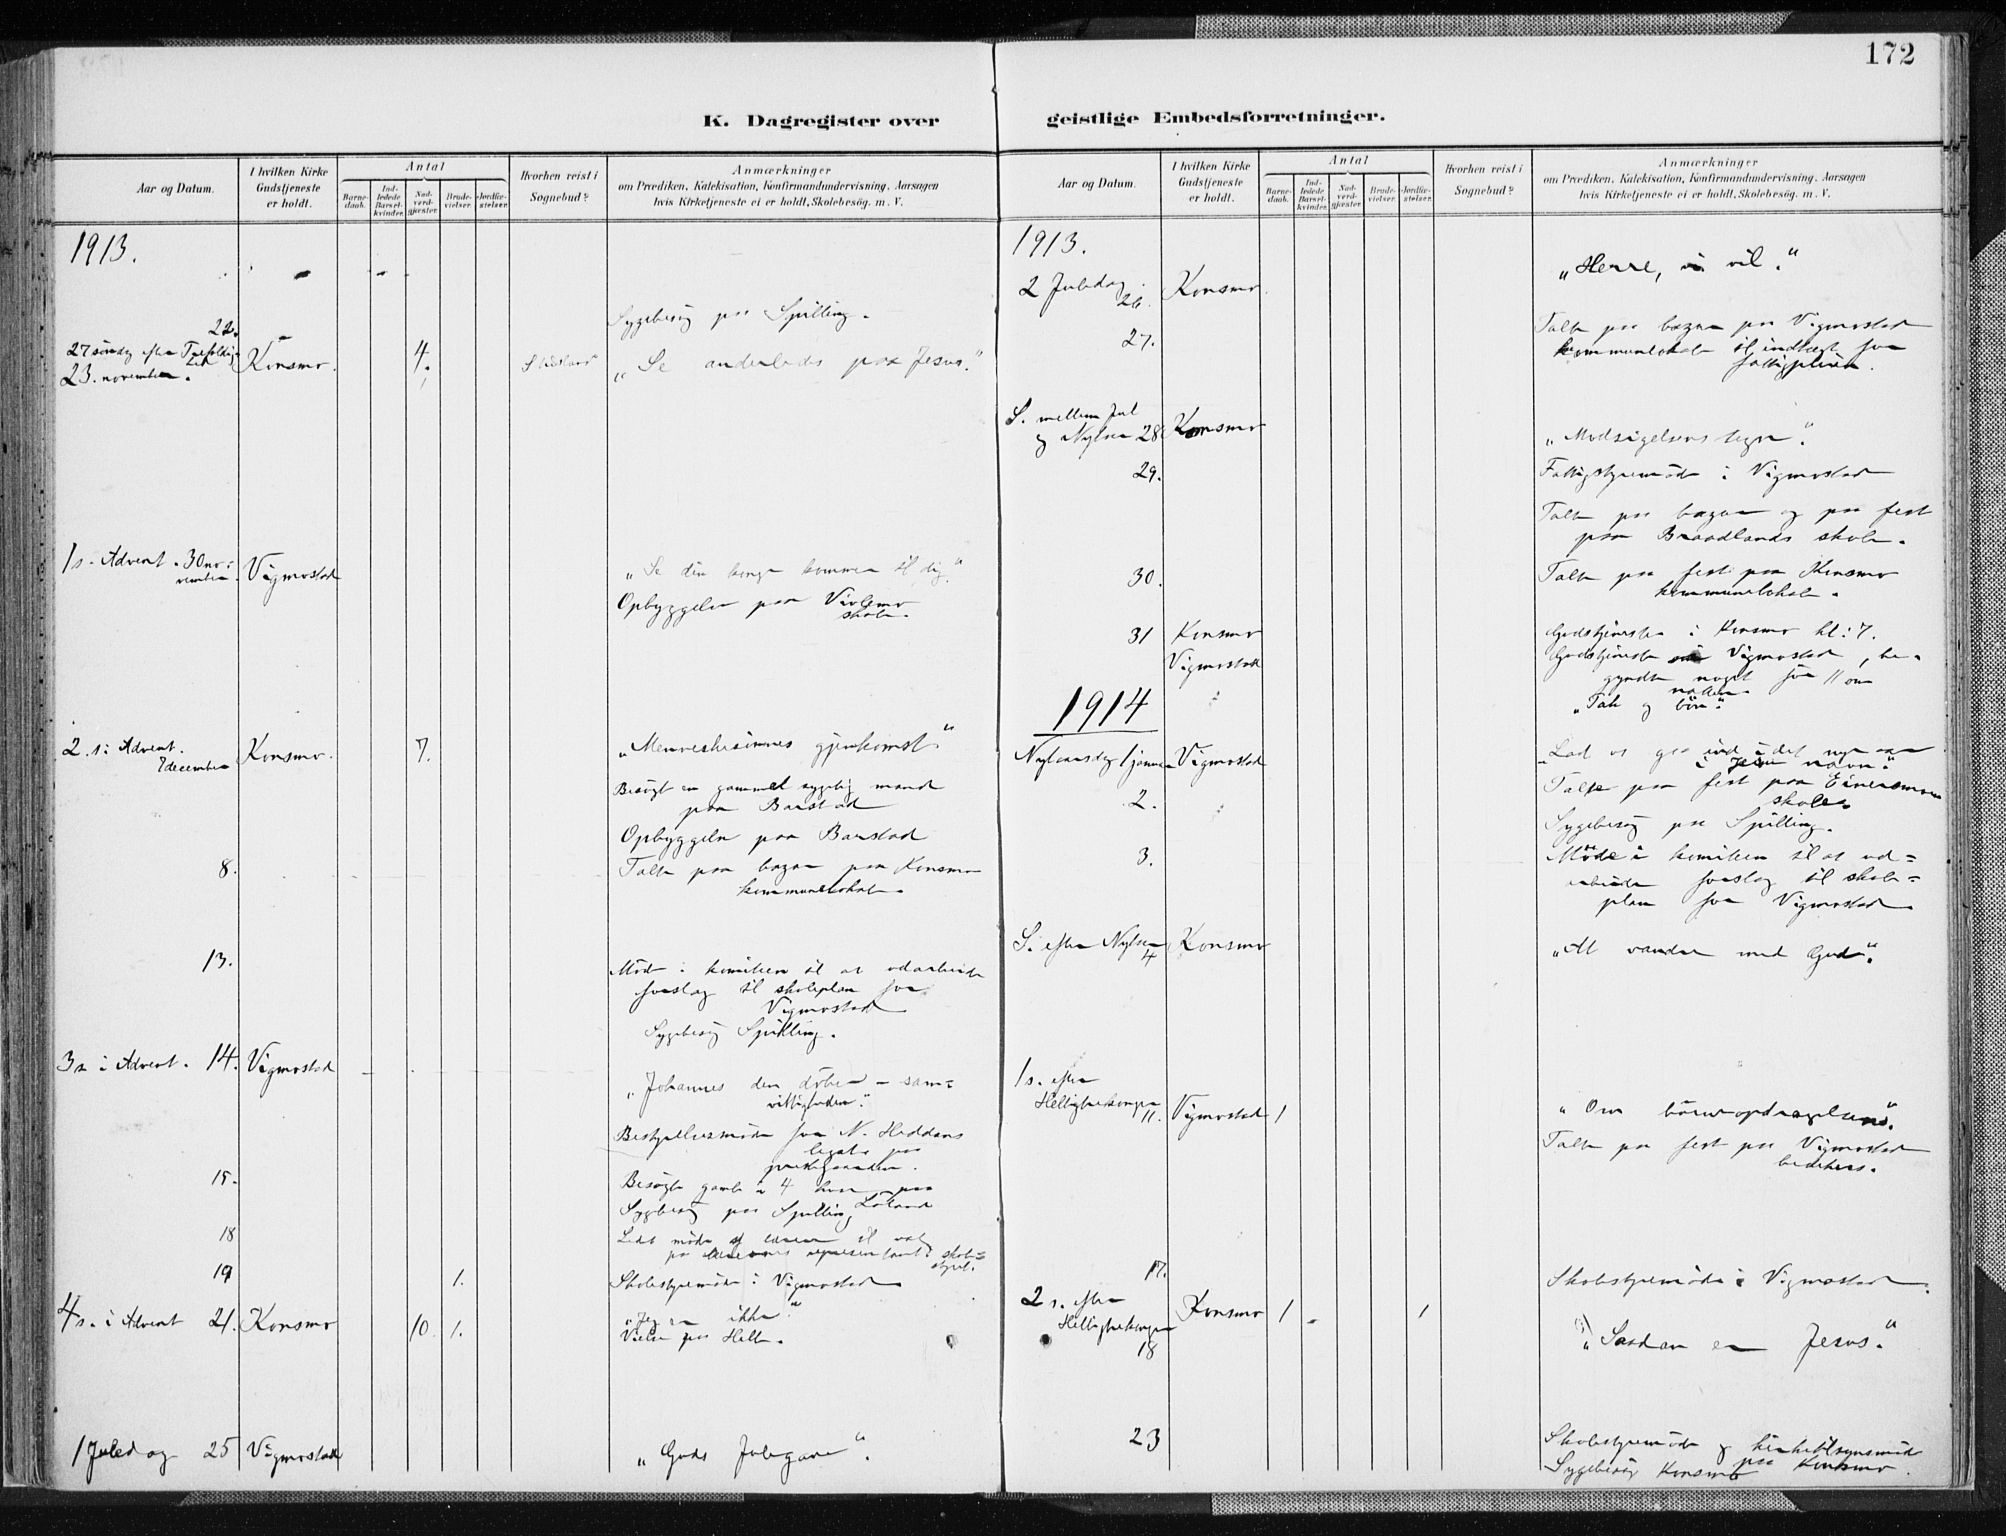 172
K. Dagregister over geistlige Embedsforretninger.
Aar og Datum.
I hvilken Kirke Gudstjeneste er holdt.
Antal
Barnedaab.
Indledede Barselkvinder.
Nadverdgjæster.
Brudevielser.
Jordfæstelser.
Hvorhen reist i Sognebud?
Anmærkninger
om Prædiken, Katekisation, Konfirmandundervisning, Aarsagen
hvis Kirketjeneste ei er holdt, Skolebesög, m. V.
1913.
22.
Sygebesög paa Spilling.
27 söndag efter Trefoldighed
23. november.
Konsmo.
4.
„Se anderledes paa Jesus."
1 s. Advent. 30 november.
Vigmostad
„Se din konge kommer til dig."
Opbyggelse paa
skole.
2. s. i Advent.
7 december
Konsmo.
7.
„Menneskesönnes gjenkomst."
Besögt en gammel sygelig mand
paa Barstad
Opbyggelse paa Barstad
8.
Talte paa bazar paa Konsmo
kommunelokale.
13.
Möde i komiteen til at udarbeide
forslag til skoleplan for
Vigmostad
Sygebesög Spilling.
3 s. i Advent. 14.
Vigmostad
„Johannes den döber – sam=
vittigheden."
Bestyrelsesmöde for N. Heddans
legat paa
prestegaarden.
15.
Besögte gamle i 4 huse paa
Löland
Sygebesög paa Spilling
18
Ledet möde af lærere til valg
paa lærernes repræsentant i skole=
styret.
19
1.
Skolestyremöde i Vigmostad
4 s. i Advent 21.
Konsmo
10.
1.
„Jeg er ikke"
Vielse paa Helle.
1 Juledag 25
Vigmostad
„Guds Julegave".
Aar og Datum.
I hvilken Kirke Gudstjeneste er holdt.
Antal
Barnedaab.
Indledede Barselkvinder.
Nadverdgjæster.
Brudevielser.
Jordfæstelser.
Hvorhen reist i Sognebud?
Anmærkninger
om Prædiken, Katekisation, Konfirmandundervisning, Aarsagen
hvis Kirketjeneste ei er holdt, Skolebesög, m. V.
1913.
2 Juledag
26.
Konsmo
„Herre, vil."
27.
Talte paa bazar paa Vigmostad
kommunelokale til indtægt for
fattigpleien.
S. mellem Jul
og Nytaar 28
Konsmo
„Modsigelsens tegn".
29.
Fattigstyremöde i Vigmostad
Talte paa bazar og paa fest
paa Braadlands skole.
30.
Talte paa fest paa Konsmo
kommunelokale.
31
Konsmo
Gudstjeneste i Konsmo kl: 7.
Vigmostad
Gudstjeneste i Vigmostad, be-
gyndte noget för 11 om
natten.
„Tak og bön".
1914
Nytaarsdag 1 januar
Vigmostad
„Lad os gaa ind i det nye aar
i Jesu navn."
2.
Talte paa fest paa
skole.
Sygebesög paa Spilling.
3.
Möde i komiteen til at ud=
arbeide forslag til skole=
plan for Vigmostad
S. efter Nytaar
4
Konsmo
„At vandre med Gud".
1 s. efter
Helligtrekonger
11.
Vigmostad
1
„Om börneopdragelsen".
Talte paa fest paa Vigmostad
bedehus.
17.
Skolestyremöde i Vigmostad.
2 s. efter
Helligtrekonger
18
Konsmo
1
1
„Saadan er Jesus."
23
Skolestyremöde og kirketilsynsmöde
paa Konsmo.
Sygebesög Konsmo